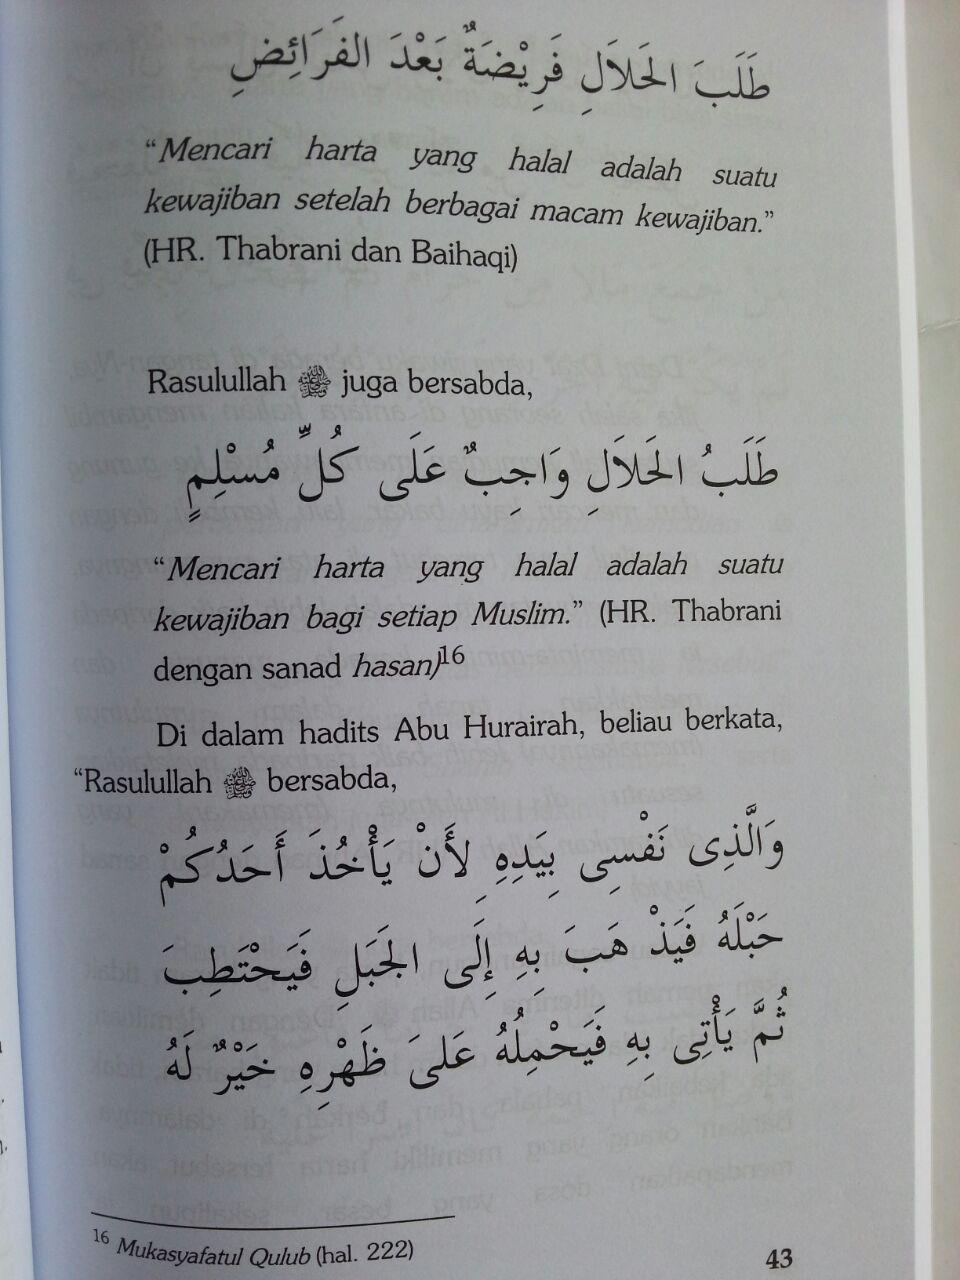 طَلَبَ الحَلاَلِ فَرِيْضَةٌ بَعْدَ الفَرَائِضِ
“Mencari harta yang halal adalah suatu
kewajiban setelah berbagai macam kewajiban.”
(HR. Thabrani dan Baihaqi)
Rasulullah ﷺ juga bersabda,
طَلَبُ الحَلاَلِ وَاجِبٌ عَلَى كُلِّ مُسْلِمٍ
“Mencari harta yang halal adalah suatu
kewajiban bagi setiap Muslim.” (HR. Thabrani
dengan sanad hasan)16
Di dalam hadits Abu Hurairah, beliau berkata,
“Rasulullah ﷺ bersabda,
وَالَّذِى نَفْسِى بِيَدِهِ لِأَنْ يَأْخُذَ أَحَدُكُمْ
حَبْلَهُ فَيَذْهَبَ بِهِ إِلَى الجَبَلِ فَيَحْتَطِبَ
ثُمَّ يَأْتِى بِهِ فَيَحْمِلُهُ عَلَىَ ظَهْرِهِ خَيْرٌ لَهُ
16 Mukasyafatul Qulub (hal. 222)
43